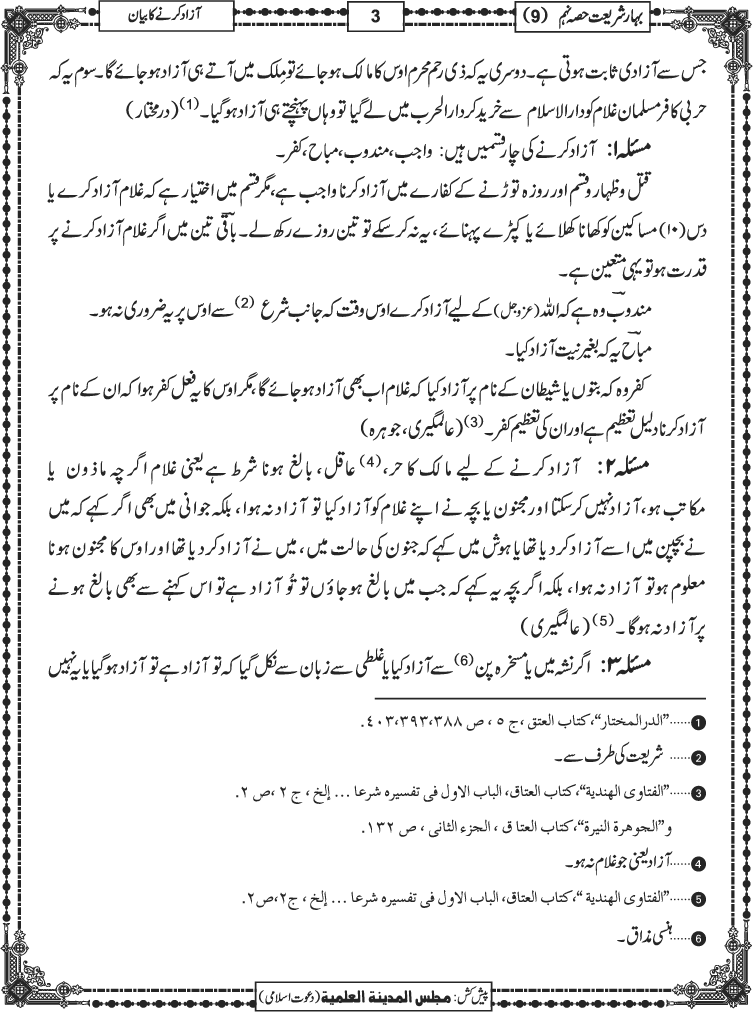 بہار شریعت حصہ نہم (9)
3
آزاد کرنے کا بیان
جس سے آزادی ثابت ہوتی ہے۔ دوسری یہ کہ ذی رحم محرم اوس کا مالک ہوجائے تو مِلک میں آتے ہی آزاد ہو جائے گا۔ سوم یہ کہ
حربی کافر مسلمان غلام کو دارالاسلام سے خرید کر دارالحرب میں لے گیا تو وہاں پہنچتے ہی آزاد ہوگیا۔(1) (درمختار)
مسئلہ ۱: آزاد کرنے کی چار قسمیں ہیں: واجب، مندوب، مباح، کفر۔
قتل و ظہار و قسم اور روزہ توڑنے کے کفارے میں آزاد کرنا واجب ہے، مگر قسم میں اختیار ہے کہ غلام آزاد کرے یا
دس (۱۰) مساکین کو کھانا کھلائے یا کپڑے پہنائے، یہ نہ کر سکے تو تین روزے رکھ لے۔ باقی تین میں اگر غلام آزاد کرنے پر
قدرت ہو تو یہی متعین ہے۔
مندوب وہ ہے کہ اللہ (عزوجل) کے لیے آزاد کرے اوس وقت کہ جانب شرع (2) سے اوس پر یہ ضروری نہ ہو۔
مباح یہ کہ بغیر نیت آزاد کیا۔
کفر وہ کہ بتوں یا شیطان کے نام پر آزاد کیا کہ غلام اب بھی آزاد ہو جائے گا، مگر اوس کا یہ فعل کفر ہوا کہ ان کے نام پر
آزاد کرنا دلیل تعظیم ہے اور ان کی تعظیم کفر۔(3) (عالمگیری، جوہرہ)
مسئلہ ۲: آزاد کرنے کے لیے مالک کا حر،(4) عاقل، بالغ ہونا شرط ہے یعنی غلام اگرچہ ماذون یا
مکاتب ہو، آزاد نہیں کرسکتا اور مجنون یا بچہ نے اپنے غلام کو آزاد کیا تو آزاد نہ ہوا، بلکہ جوانی میں بھی اگر کہے کہ میں
نے بچپن میں اسے آزاد کر دیا تھا یا ہوش میں کہے کہ جنون کی حالت میں، میں نے آزاد کر دیا تھا اور اوس کا مجنون ہونا
معلوم ہو تو آزاد نہ ہوا، بلکہ اگر بچہ یہ کہے کہ جب میں بالغ ہوجاؤں تو تُو آزاد ہے تو اس کہنے سے بھی بالغ ہونے
پر آزاد نہ ہوگا۔(5) (عالمگیری)
مسئلہ ۳: اگر نشہ میں یا مسخرہ پن (6) سے آزاد کیا یا غلطی سے زبان سے نکل گیا کہ تو آزاد ہے تو آزاد ہوگیا یا یہ نہیں
1 ......"الدرالمختار"، کتاب العتق، ج ٥ ، ص ٣٨٨،٣٩٣،٤٠٣.
2 ...... شریعت کی طرف سے۔
3 ......"الفتاوی الهندية"، کتاب العتاق، الباب الاول فی تفسیرہ شرعا ... إلخ ، ج ٢ ،ص ٢.
و "الجوهرة النيرة"، کتاب العتاق ، الجزء الثانی ، ص ١٣٢.
4 ...... آزاد یعنی جو غلام نہ ہو۔
5 ......"الفتاوی الهندية"، کتاب العتاق، الباب الاول فی تفسیرہ شرعا ... إلخ ، ج٢،ص٢.
6 ...... ہنسی مذاق۔
پیش کش: مجلس المدینة العلمیة (دعوت اسلامی)